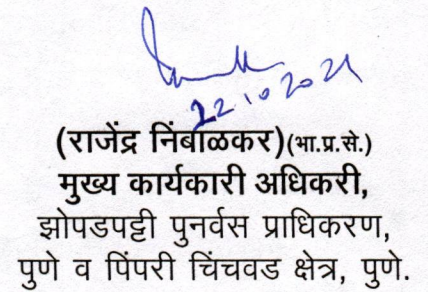 22.10.2021
(राजेंद्र निंबाळकर)(भा.प्र.से.)
मुख्य कार्यकारी अधिकरी,
झोपडपट्टी पुनर्वस प्राधिकरण,
पुणे व पिंपरी चिंचवड क्षेत्र, पुणे.